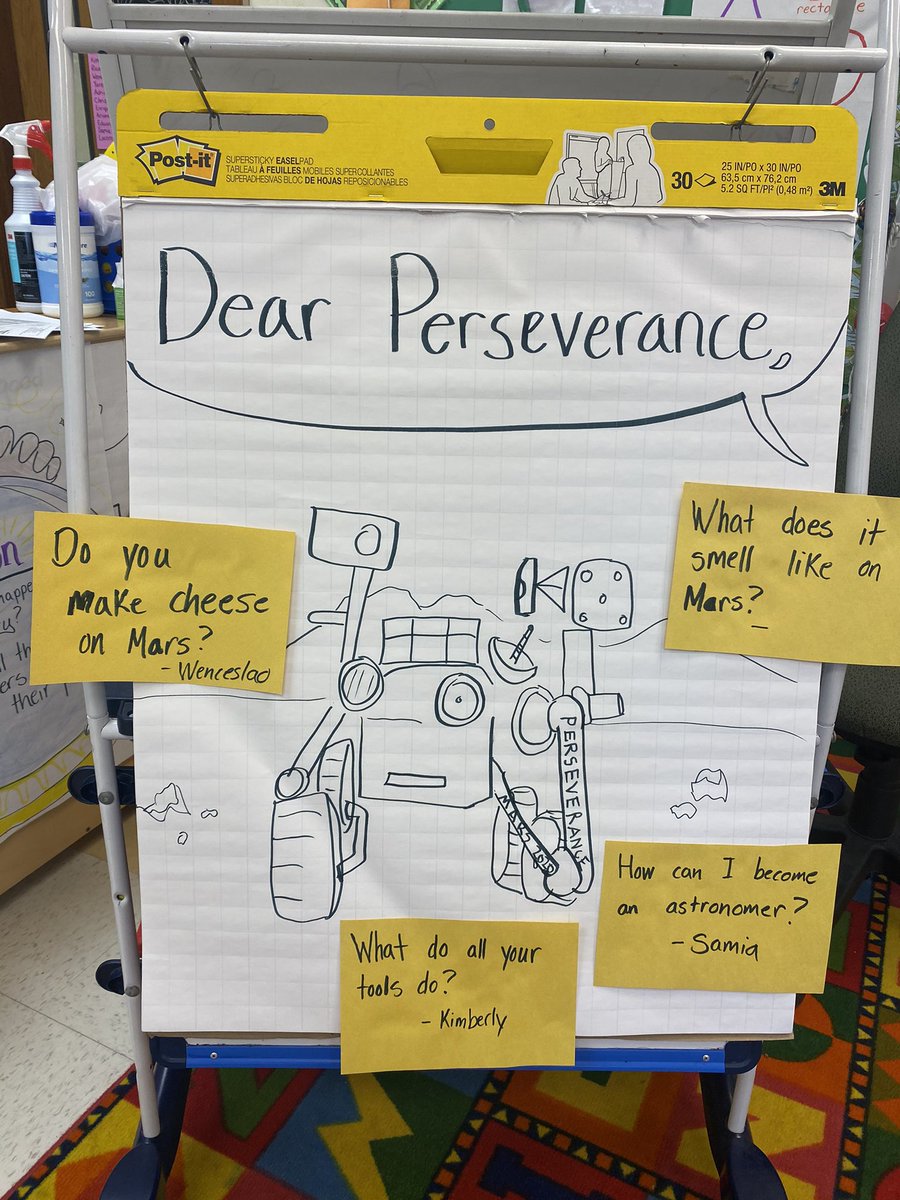 Post-it
SUPERSTICKY EASEL PAD
TABLEAU À FEUILLES MOBILES SUPERCOLLANTES
SUPERADHESIVAS BLOC DE HOJAS REPOSICIONABLES
30
25 IN/PO x 30 IN/PO
63,5 cm x 76,2 cm
5.2 SQ FT/PI² (0,48 m²)
3M
Dear Perseverance,
Do you
make cheese
on Mars?
- Wenceslao
What does it
smell like on
Mars?
PERSEVERANCE
MARS
How can I become
an astronomer?
- Samia
What do all your
tools do?
- Kimberly